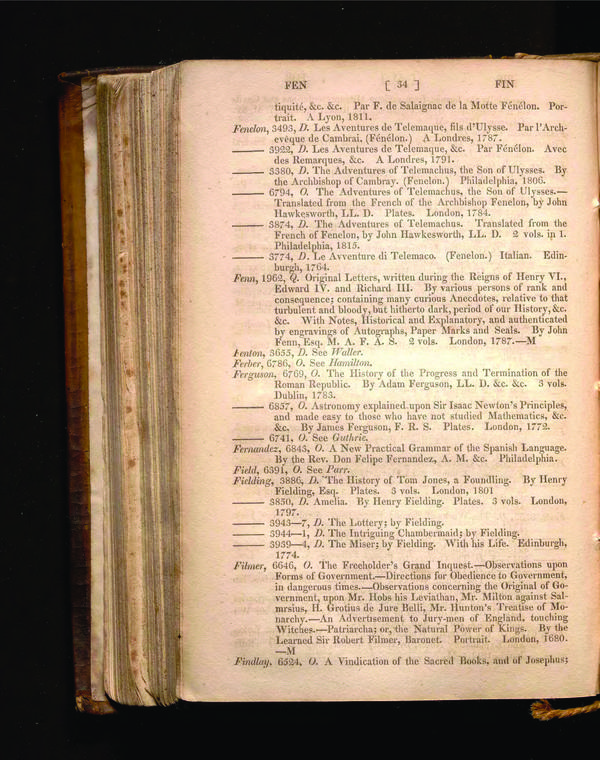 FEN [ 34 ] FIN
tiquité, &c. &c. Par F. de Salaignac de la Motte Fénélon. Por-
trait. A Lyon, 1811.
Fenelon, 3493, D. Les Aventures de Telemaque, fils d'Ulysse. Par l'Arch-
evêque de Cambrai. (Fénélon.) A Londres, 1787.
—— 3922, D. Les Aventures de Telemaque, &c. Par Fénélon. Avec
des Remarques, &c. A Londres, 1791.
—— 3380, D. The Adventures of Telemachus, the Son of Ulysses. By
the Archbishop of Cambray. (Fenelon.) Philadelphia, 1806.
—— 6794, O. The Adventures of Telemachus, the Son of Ulysses.—
Translated from the French of the Archbishop Fenelon, by John
Hawkesworth, LL. D. Plates. London, 1784.
—— 3874, D. The Adventures of Telemachus. Translated from the
French of Fenelon, by John Hawkesworth, LL. D. 2 vols. in 1.
Philadelphia, 1815.
—— 3774, D. Le Avventure di Telemaco. (Fenelon.) Italian. Edin-
burgh, 1764.
Fenn, 1962, Q. Original Letters, written during the Reigns of Henry VI.,
Edward IV. and Richard III. By various persons of rank and
consequence; containing many curious Anecdotes, relative to that
turbulent and bloody, but hitherto dark, period of our History, &c.
&c. With Notes, Historical and Explanatory, and authenticated
by engravings of Autographs, Paper Marks and Seals. By John
Fenn, Esq. M. A. F. A. S. 2 vols. London, 1787.—M
Fenton, 3655, D. See Waller.
Ferber, 6786, O. See Hamilton.
Ferguson, 6769, O. The History of the Progress and Termination of the
Roman Republic. By Adam Ferguson, LL. D. &c. &c. 3 vols.
Dublin, 1783.
—— 6857, O. Astronomy explained upon Sir Isaac Newton's Principles,
and made easy to those who have not studied Mathematics, &c.
&c. By James Ferguson, F. R. S. Plates. London, 1772.
—— 6741, O. See Guthrie.
Fernandez, 6843, O. A New Practical Grammar of the Spanish Language.
By the Rev. Don Felipe Fernandez, A. M. &c. Philadelphia.
Field, 6391, O. See Parr.
Fielding, 3886, D. The History of Tom Jones, a Foundling. By Henry
Fielding, Esq. Plates. 3 vols. London, 1801
—— 3850, D. Amelia. By Henry Fielding. Plates. 3 vols. London,
1797.
—— 3943—7, D. The Lottery; by Fielding.
—— 3944—1, D. The Intriguing Chambermaid; by Fielding.
—— 3939—4, D. The Miser; by Fielding. With his Life. Edinburgh,
1774.
Filmer, 6646, O. The Freeholder's Grand Inquest.—Observations upon
Forms of Government.—Directions for Obedience to Government,
in dangerous times.—Observations concerning the Original of Go-
vernment, upon Mr. Hobs his Leviathan, Mr. Milton against Sal-
mrsius, H. Grotius de Jure Belli, Mr. Hunton's Treatise of Mo-
narchy.—An Advertisement to Jury-men of England, touching
Witches.—Patriarcha; or, the Natural Power of Kings. By the
Learned Sir Robert Filmer, Baronet. Portrait. London, 1680.
—M
Findlay, 6524, O. A Vindication of the Sacred Books, and of Josephus;